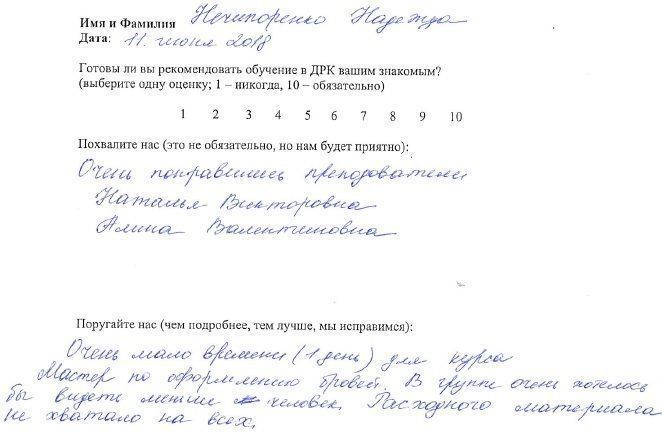 Имя и Фамилия Нечипоренко Надежда
Дата: 11. июня 2018
Готовы ли вы рекомендовать обучение в ДРК вашим знакомым?
(выберите одну оценку; 1 – никогда, 10 – обязательно)
1 2 3 4 5 6 7 8 9 10
Похвалите нас (это не обязательно, но нам будет приятно):
Очень понравились преподаватели
Наталья Викторовна
Алина Валентиновна
Поругайте нас (чем подробнее, тем лучше, мы исправимся):
Очень мало времени (1 день) для курса
Мастер по оформлению бровей. В группе очень хотелось
бы видеть меньше человек. Расходного материала
не хватало на всех.